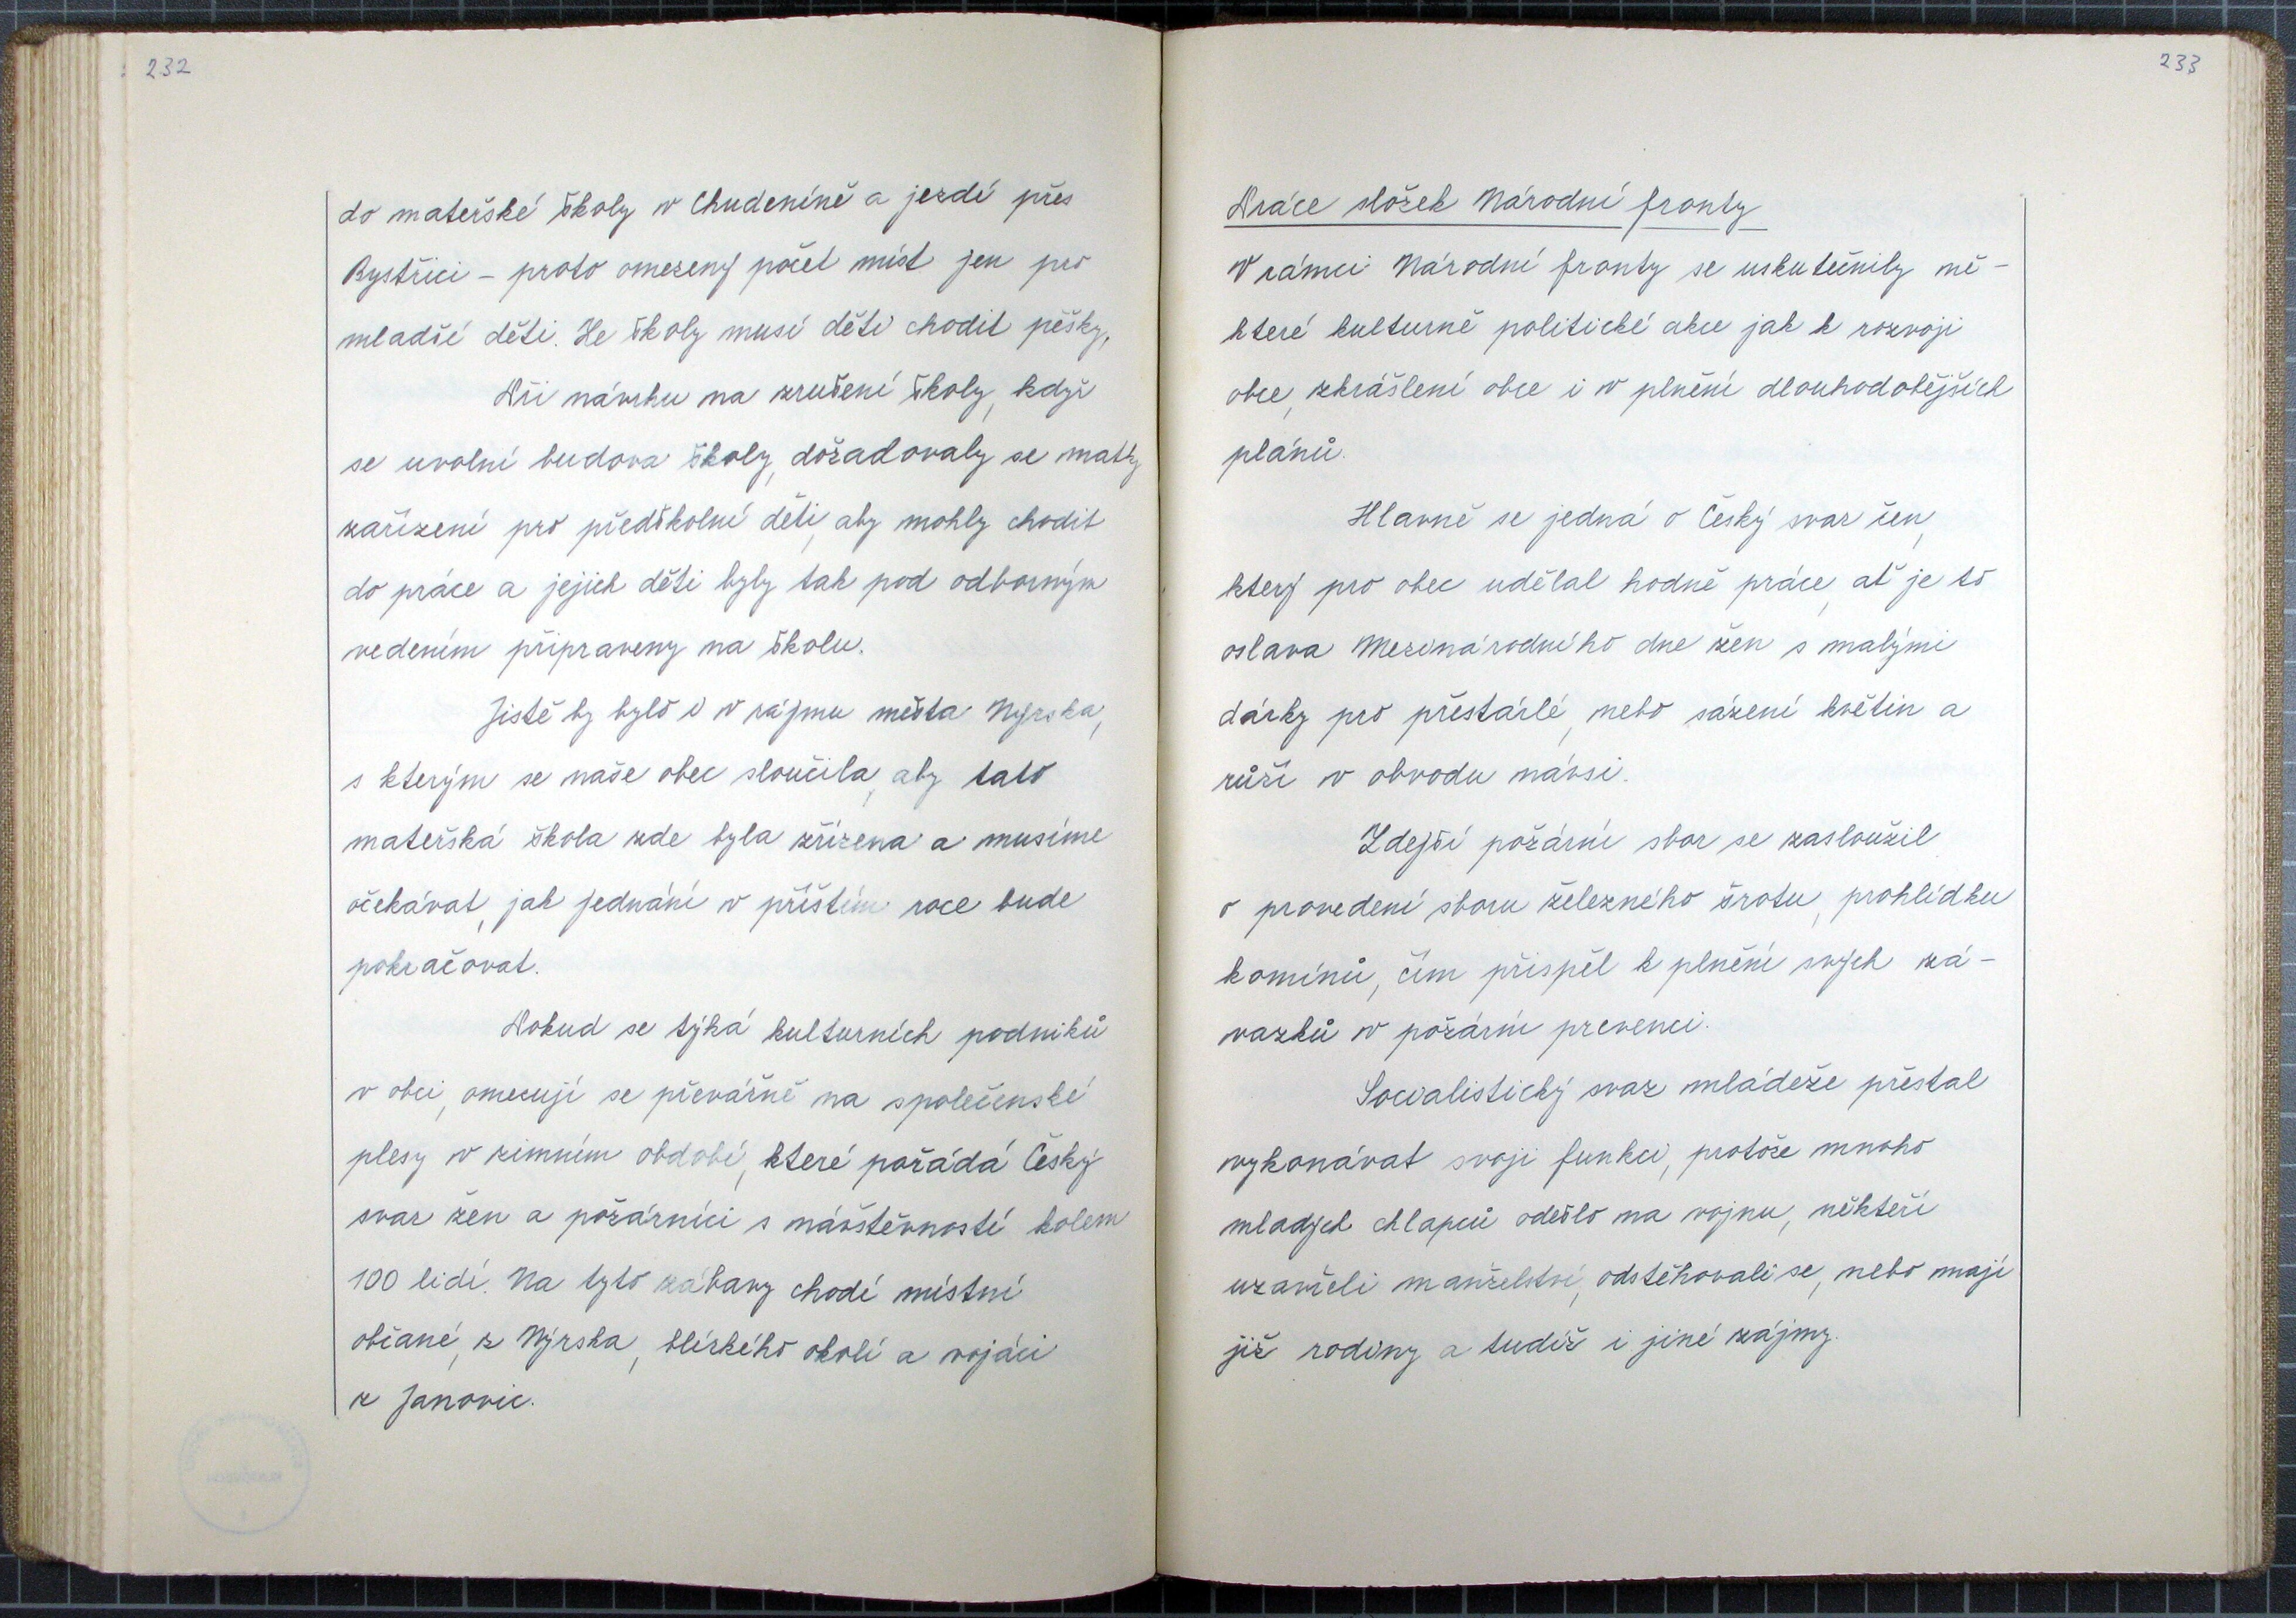 232
do mateřské školy v Chudeníně a jezdí přes
Bystřici – proto omezený počet míst jen pro
mladší děti. Ze školy musí děti chodit pěšky.
Při návrhu na zrušení školy, když
se uvolní budova školy, dožadovaly se matky
zařízení pro předškolní děti, aby mohly chodit
do práce a jejich děti byly tak pod odborným
vedením připraveny na školu.
Jistě by bylo i v zájmu města Nýrska,
s kterým se naše obec sloučila, aby tato
mateřská škola zde byla zřízena a musíme
očekávat, jak jednání v příštím roce bude
pokračovat.
Pokud se týká kulturních podniků
v obci, omezují se převážně na společenské
plesy v zimním období, které pořádá Český
svaz žen a požárníci s návštěvností kolem
100 lidí. Na tyto zábavy chodí místní
občané, z Nýrska, blízkého okolí a vojáci
z Janovic.
233
Práce složek Národní fronty
V rámci Národní fronty se uskutečnily ně-
které kulturně politické akce jak k rozvoji
obce, zkrášlení obce i v plnění dlouhodobějších
plánů.
Hlavně se jedná o Český svaz žen,
který pro obec udělal hodně práce, ať je to
oslava Mezinárodního dne žen s malými
dárky pro přestárlé, nebo sázení květin a
růží v obvodu návsi.
Zdejší požární sbor se zasloužil
o provedení sboru železného šrotu, prohlídku
komínů, čím přispěl k plnění svých zá-
vazků v požární prevenci.
Socialistický svaz mládeže přestal
vykonávat svoji funkci, protože mnoho
mladých chlapců odešlo na vojnu, někteří
uzavřeli manželství, odstěhovali se, nebo mají
již rodiny a tudíž i jiné zájmy.